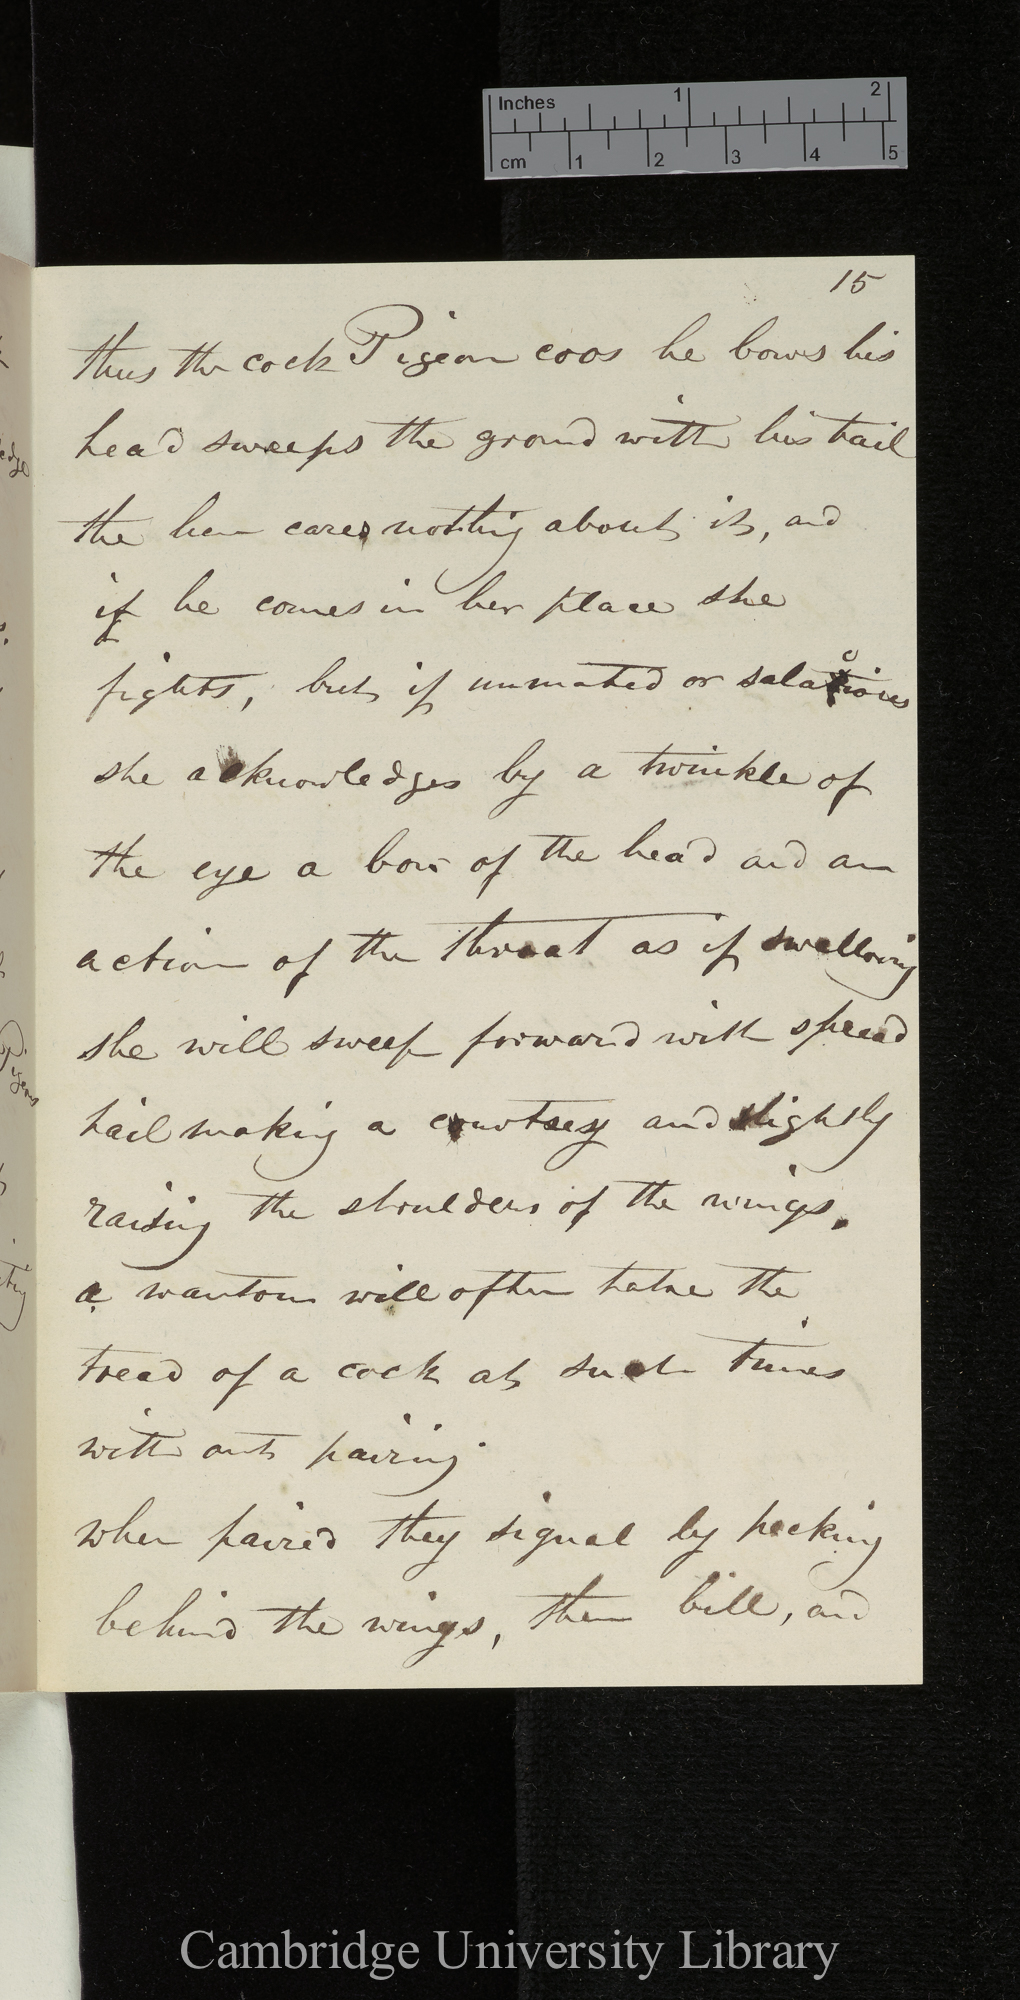 Inches 1 2
cm 1 2 3 4 5
15
thus the cock Pigeon coos he bows his
head sweeps the ground with his tail
the hen cares nothing about it, and
if he comes in her place she
fights, but if unmated or salacious
she acknowledges by a twinkle of
the eye a bow of the head and an
action of the throat as if swallowing
she will sweep forward with spread
tail making a courtsey and slightly
raising the shoulders of the wings.
a wanton will often take the
tread of a cock at such times
with out pairing.
when paired they signal by pecking
behind the wings, then bill, and
Cambridge University Library